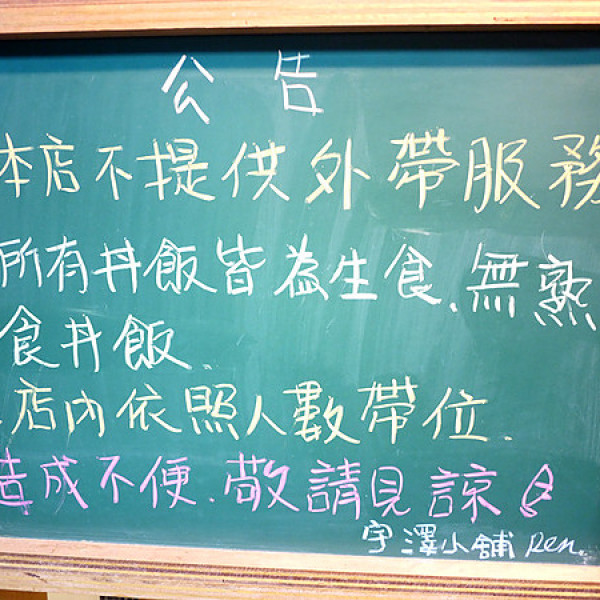 公告
本店不提供外帶服務
所有丼飯皆為生食.無熟
食丼飯.
店內依照人數帶位.
造成不便.敬請見諒
宇澤小舖 Ren.